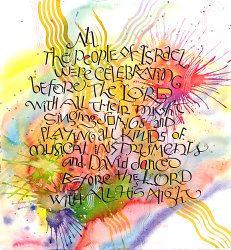 All
the people of Israel
were celebrating
before the LORD
with all their might
singing songs and
playing all kinds of
musical instruments
and David danced
before the LORD
with all his might